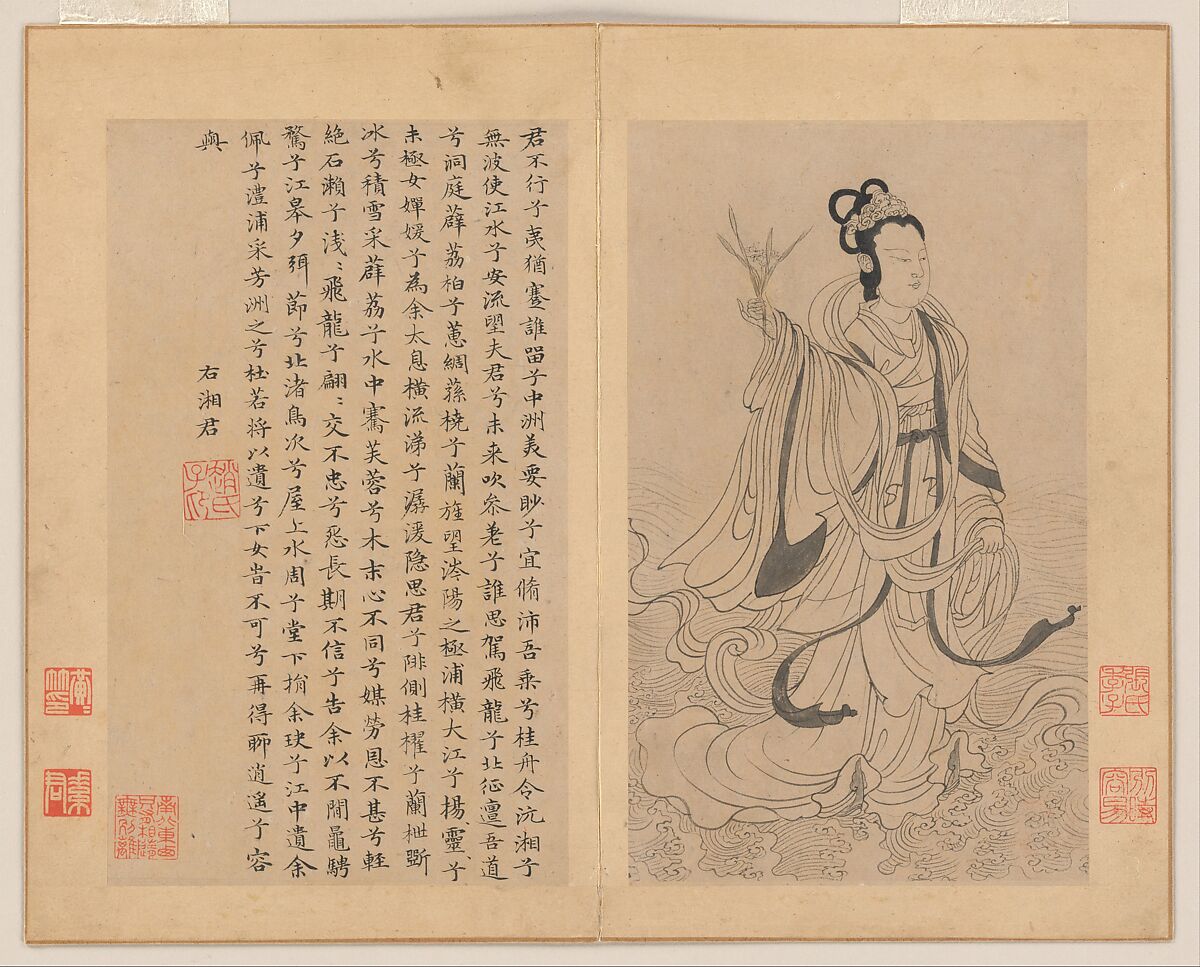 君不行兮夷猶蹇誰留兮中洲美要眇兮宜脩沛吾乘兮桂舟令沅湘兮
無波使江水兮安流望夫君兮未来吹參差兮誰思駕飛龍兮北征邅吾道
兮洞庭薜荔柏兮蕙綢蓀橈兮蘭旌望涔陽之極浦橫大江兮揚靈兮
未極女嬋媛兮為余太息橫流涕兮潺湲隐思君兮陫側桂櫂兮蘭枻斲
冰兮積雪采薜荔兮水中搴芙蓉兮木末心不同兮媒勞恩不甚兮輕
絕石瀨兮浅ミ飛龍兮翩ミ交不忠兮怨長期不信兮告余以不閒鼂騁
騖兮江皋夕弭節兮北渚鳥次兮屋上水周兮堂下捐余玦兮江中遺余
佩兮澧浦采芳洲之兮杜若将以遺兮下女旹不可兮再得聊逍遥兮容
與
右湘君
趙氏子昂
別時容易